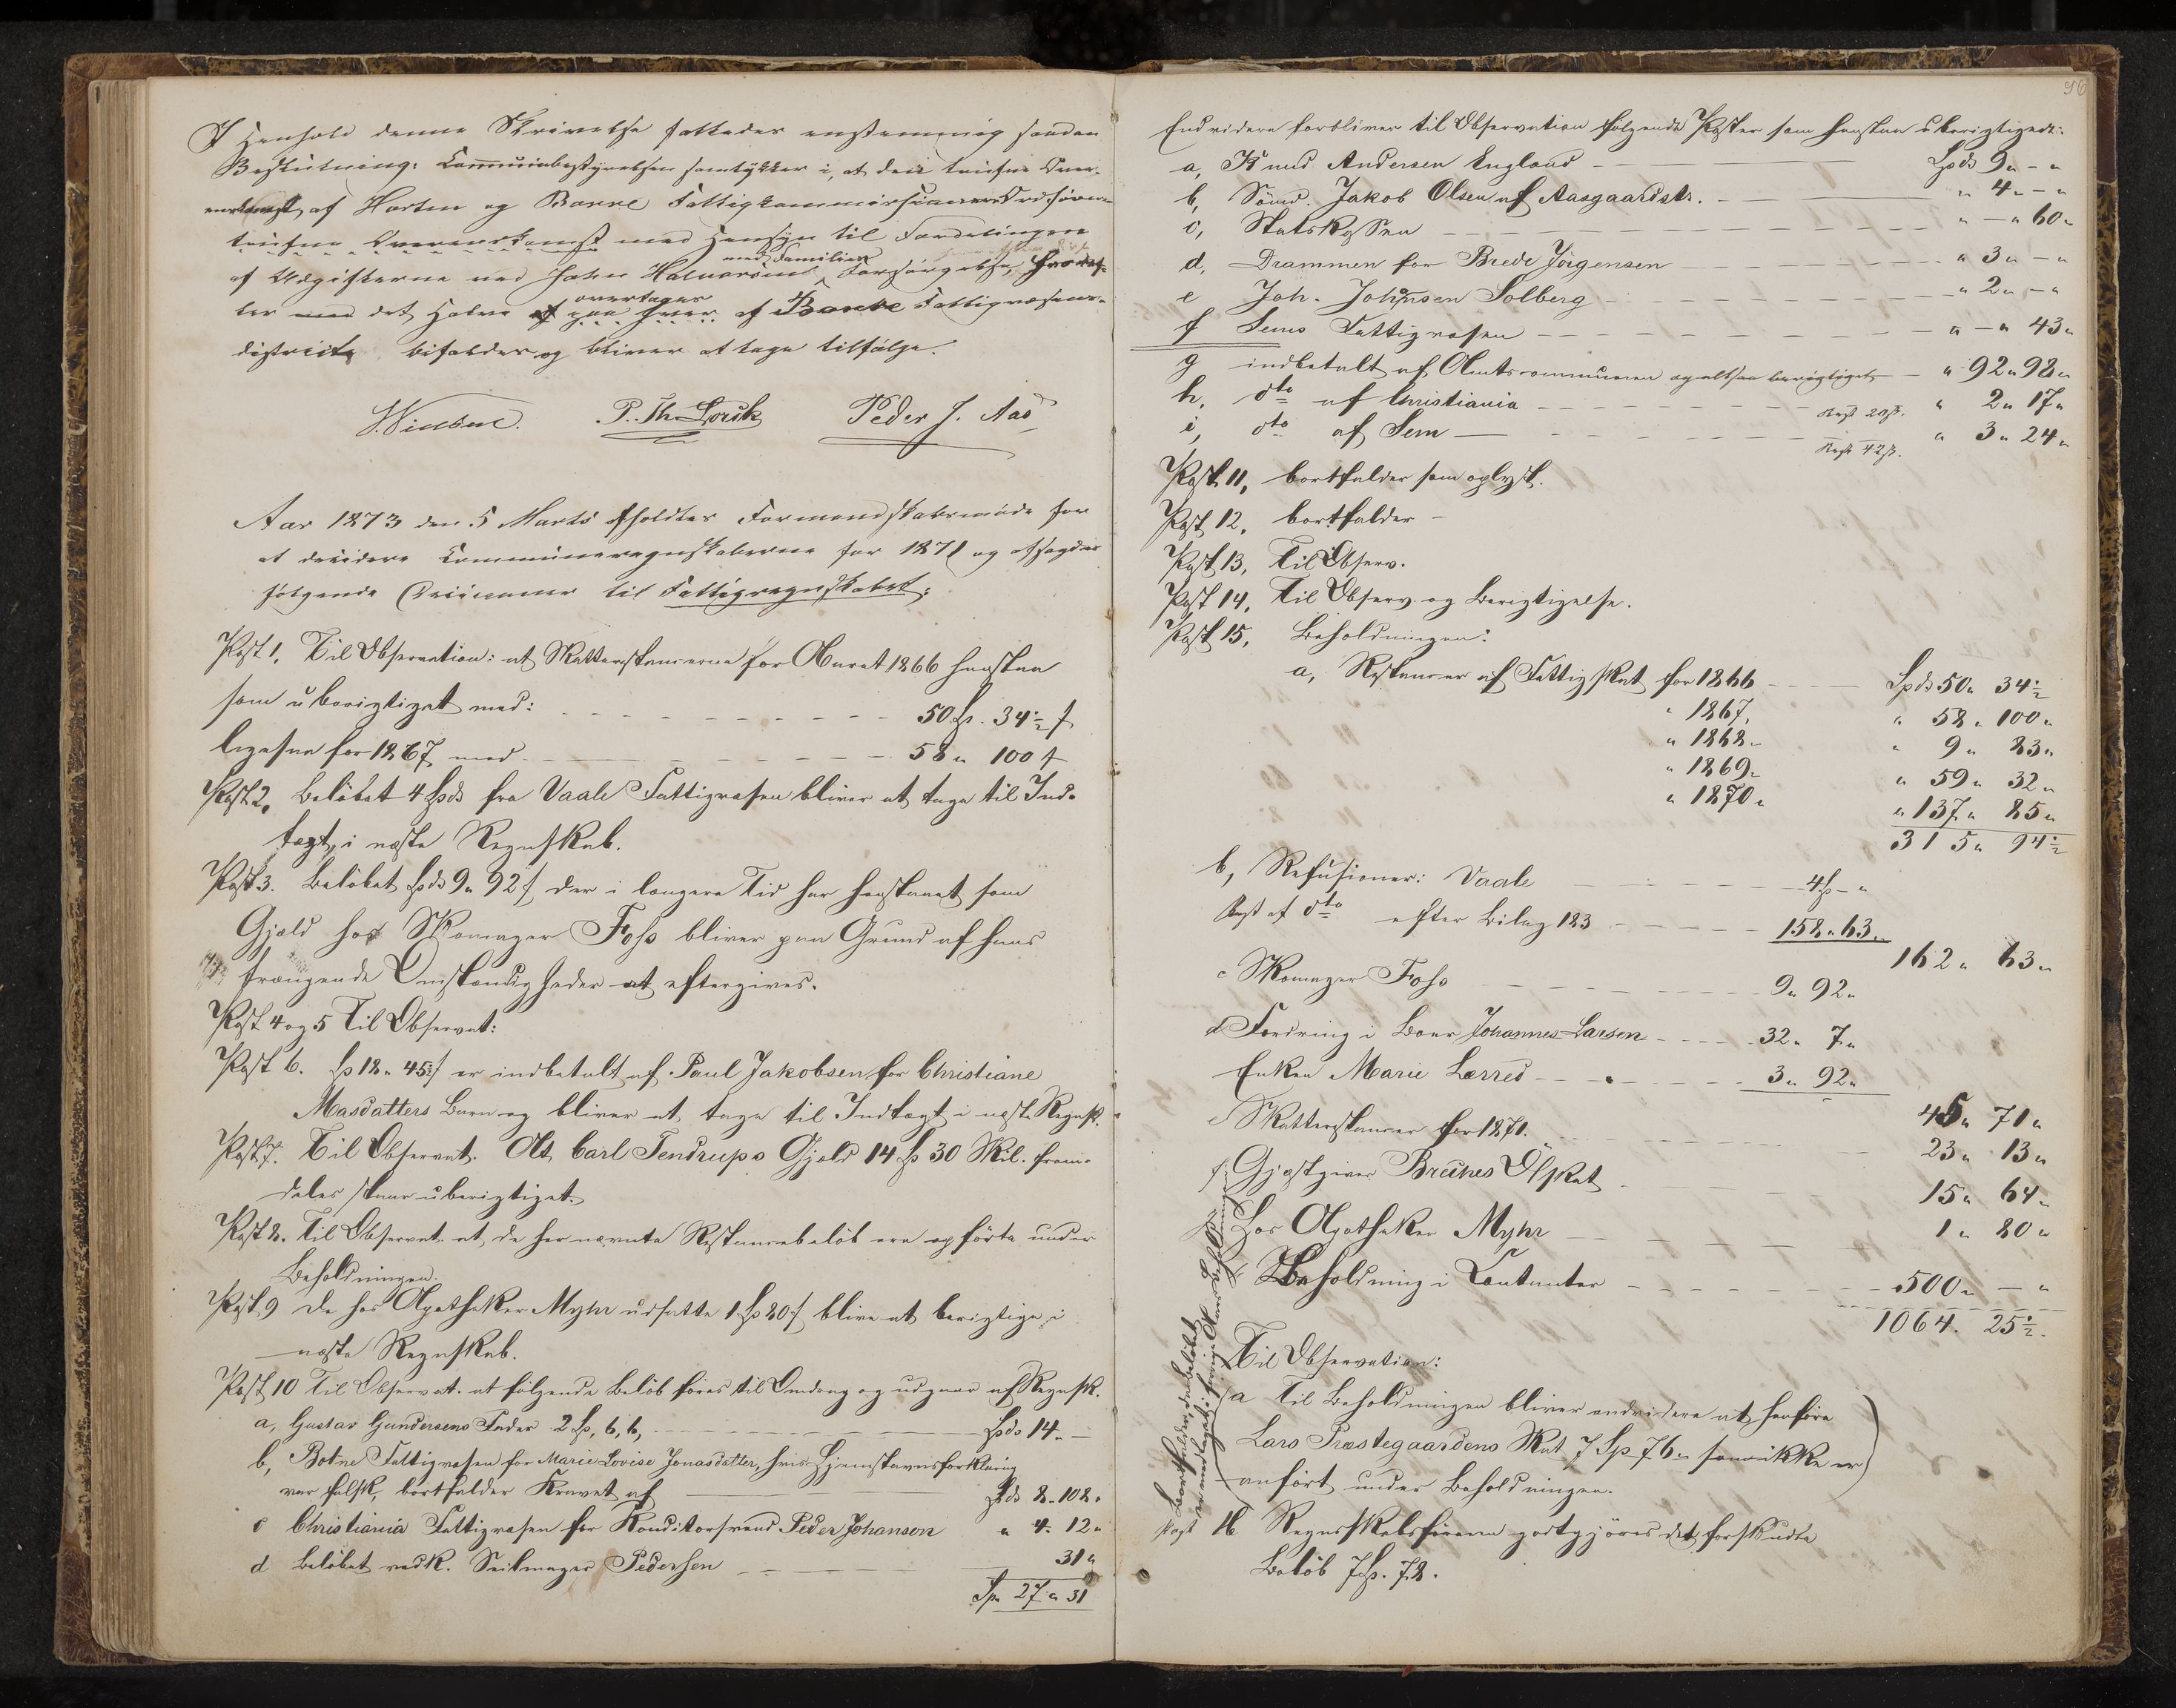 I Henhold denne Skrivelse fattedes enstemmig saadan
Beslutning: Communebestyrelsen samtykker i, at den trufne Over-
enskomst af Horten og Borre Fattigkommissioners Ordförere
trufne Overenskomst med Hensyn til Fordelingen
af Udgifterne ved Johan Halvorsens med Familien Forsörgelse,
ler med det Halve overtages paa hver af Borre Fattigvæsens-
distrikt, bifaldes og bliver at tage tilfölge.
P. Th. Lorck Peder J. Aas
Aar 1873 den 5 Marts afholdtes Formandskabsmöde for
at decidere Communeregnskaberne for 1871 og afsagdes
fölgende Decisioner til Fattigregnskabet:
Post 1. Til Observation: at Skatterestancerne for Aaret 1866 henstaa
som uberigtiget med: 50 Sp. 34½ s
ligesaa for 1867 med 58 " 100 s
Post 2. Belöbet 4 Spd fra Vaale Fattigvæsen bliver at tage til Ind-
tægt i næste Regnskab.
Post 3. Belöbet Spd 9 " 92 s der i længere Tid har henstaaet som
Gjæld hos Skomager Foss bliver paa Grund af hans
trængende Omstændigheder at eftergives.
Post 4 og 5 Til Observat:
Post 6. Sp 18 " 45 s er indbetalt af Paul Jakobsen for Christiane
Masdatters Barn og bliver at tage til Indtægt i næste Regnsk.
Post 7. Til Observat. At Carl Tendrups Gjæld 14 Sp 30 Skil. frem-
deles staar uberigtiget.
Post 8. Til Observat. at de her nævnte Restancebelöb ere opförte under
Beholdningen.
Post 9 De hos Apotheker Myhr udsatte 1 Sp 80 s blive at berigtige i
næste Regnskab.
Post 10 Til Observat. at fölgende Belöb föres til Omdrag og udgaar af Regnsk.
a, Gustav Gundersens Fader 2 Sp, 6, 6, Spd 14 " —
b, Botne Fattigvæsen for Marie Lovise Jonasdatter, hvis Hjemstavnsforklaring
var falsk, bortfalder Kravet af Spd 8 " 108 "
c Christiania Fattigvæsen for Konditorsvend Peder Johansen " 4 " 12 "
d Belöbet vedk. Seilmager Pedersen 31 "
Sp. 27 " 31
96
Endvidere forbliver til Observation fölgende Poster som henstaa uberigtigede:
a, Knud Andersen England Spd 9 " - "
b, Sömd. Jakob Olsen af Aasgaardstr. " 4 " - "
c, Statskassen " - " 60 "
d, Drammen for Brede Jörgensen " 3 " - "
e Joh. Johnsen Solberg " 2 " - "
f Sems Fattigvæsen " - " 43 "
g indbetalt af Amtscommunen og altsaa berigtiget " 92 " 98 "
h, dto af Christiania Rest 20 s. " 2 " 17 "
i, dto af Sem Rest 42 s. " 3 " 24 "
Post 11, bortfalder som oplyst.
Post 12, bortfalder -
Post 13, Til Observ.
Post 14, Til Observ. og Berigtigelse.
Post 15, Beholdningen:
a, Restancer af Fattigskat for 1866 Spd 50 " 34½
" 1867, " 58 " 100 "
" 1868 " " 9 " 83 "
" 1869 " " 59 " 32 "
" 1870 " " 137 " 85 "
315 " 94½
b, Refusioner: Vaale 4 Sp - "
Rest af dto efter Bilag 183 158 " 63 "
162 " 63 "
c Skomager Foss 9 " 92 "
d Fordring i Boer Johannes Larsen 32 " 7 "
Enken Marie Lærred 3 " 92 "
45 " 71 "
e Skatterestancer for 1871. 23 " 13 "
f Gjæstgiver Bruhns Ölskat 15 " 64 "
g Hos Apotheker Myhr 1 " 80 "
h Beholdning i Contanter 500 " — "
1064. 25½.
Til Observation:
a Til Beholdningen bliver endvidere at henföre
Lars Præstegaardens Skat 7 Sp 76 " som ikke er
anfört under Beholdningen.
Bortfalder, da belöbet
er medtaget i forrige Aars Beholdning
Post 16 Regnskabsföreren godtgjöres det forskudte
Belöb 7 Sp. 78.